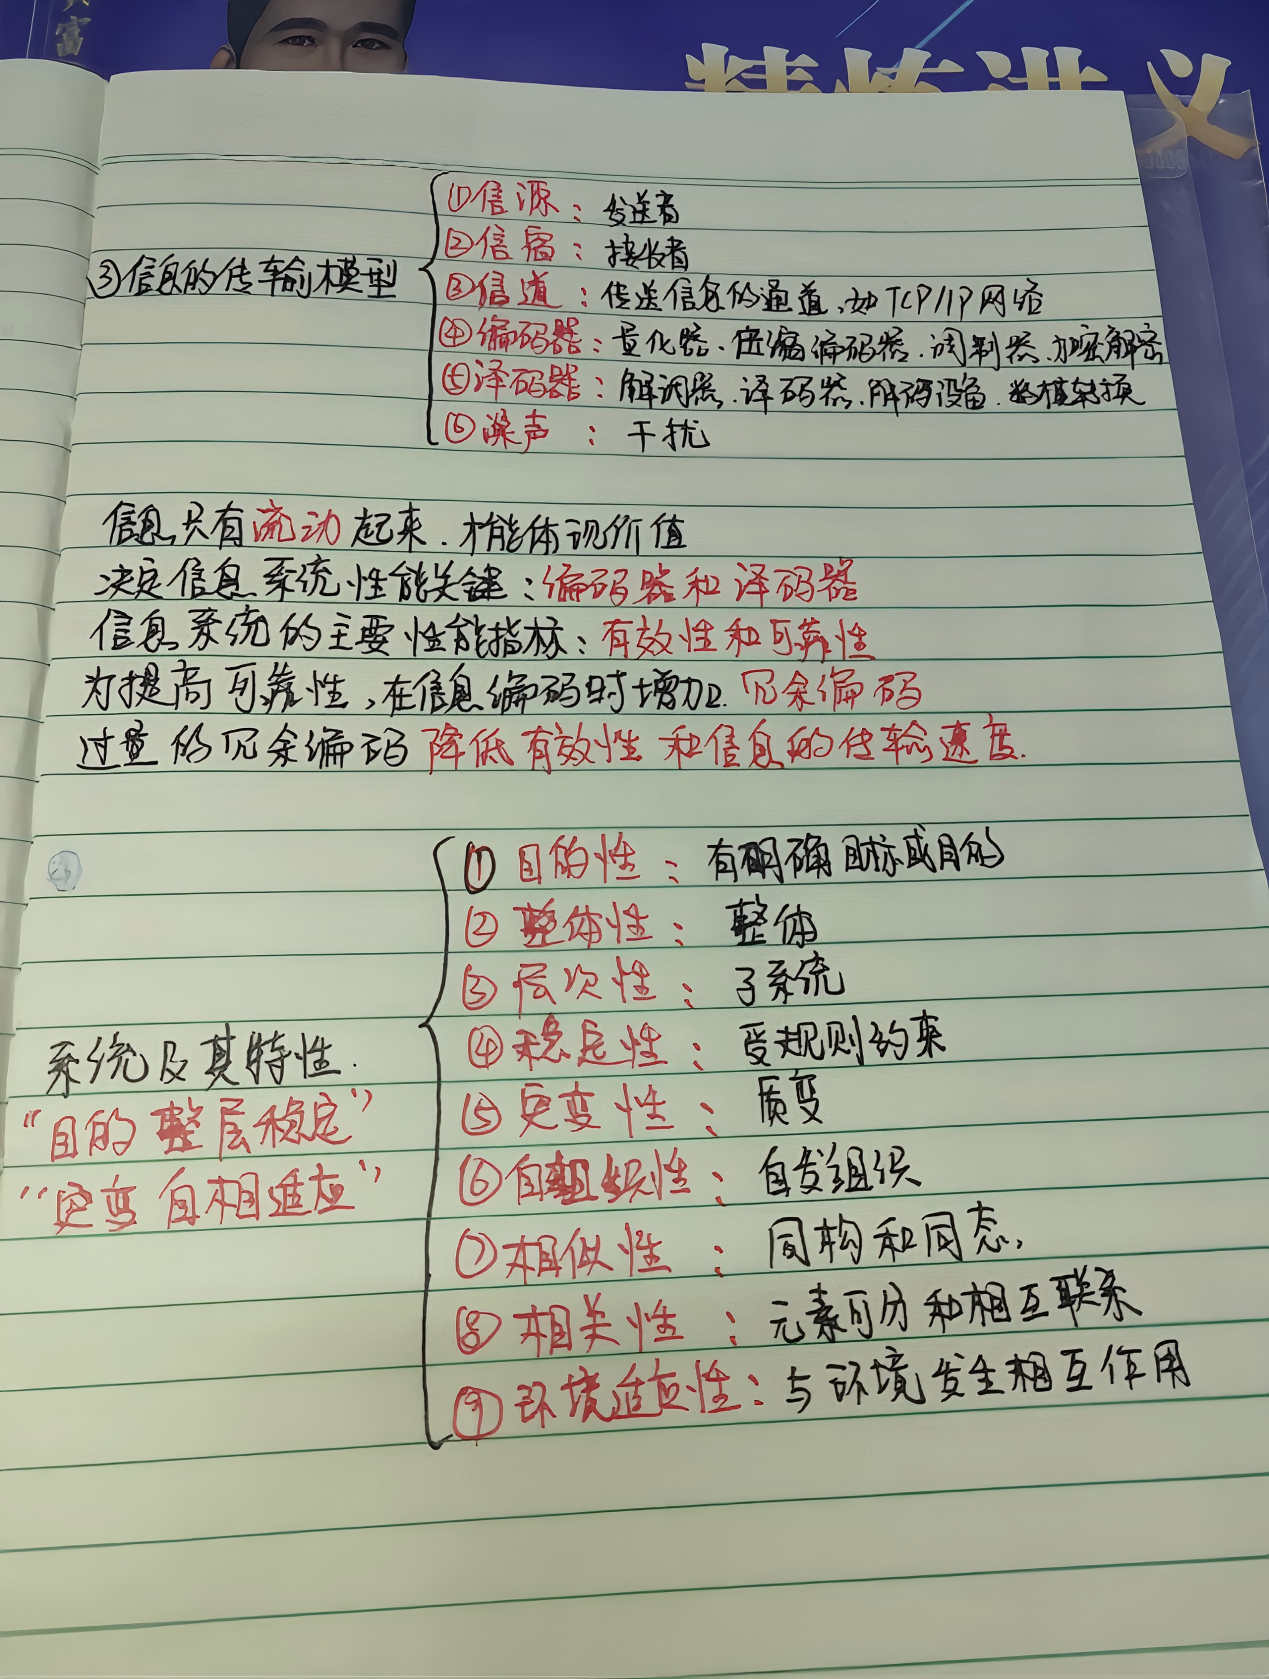 精炼讲义
富
①信源：发送者
②信宿：接收者
③信息的传输模型
③信道：传送信息的通道，如TCP/IP网络
④编码器：量化器、压缩编码器、调制器、加密解密
⑤译码器：解调器、译码器、解码设备、数模转换
⑥噪声：干扰
信息只有流动起来、才能体现价值
决定信息系统性能关键：编码器和译码器
信息系统的主要性能指标：有效性和可靠性
为提高可靠性，在信息编码时增加冗余编码
过量的冗余编码降低有效性和信息的传输速度.
①目的性：有明确目标或目的
②整体性：整体
③层次性：子系统
④稳定性：受规则约束
系统及其特性.
“目的整层稳定”
⑤突变性：质变
“突变自相适应”
⑥自组织性：自发组织
⑦相似性：同构和同态,
⑧相关性：元素可分和相互联系
⑨环境适应性：与环境发生相互作用